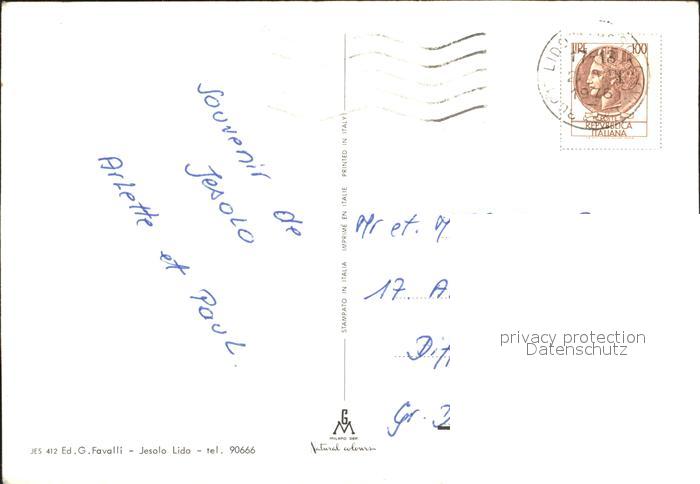 Souvenir de
JESOLO
Arlette et Paul.
STAMPATO IN ITALIA IMPRIMÉ EN ITALIE PRINTED IN ITALY
LIRE 100
1976
REPVBBLICA
ITALIANA
Mr et. M
17. A.
Diff
Gr. D
privacy protection
Datenschutz
GM
MILANO DEP.
Natural colours
JES 412 Ed. G. Favalli - Jesolo Lido - tel. 90666